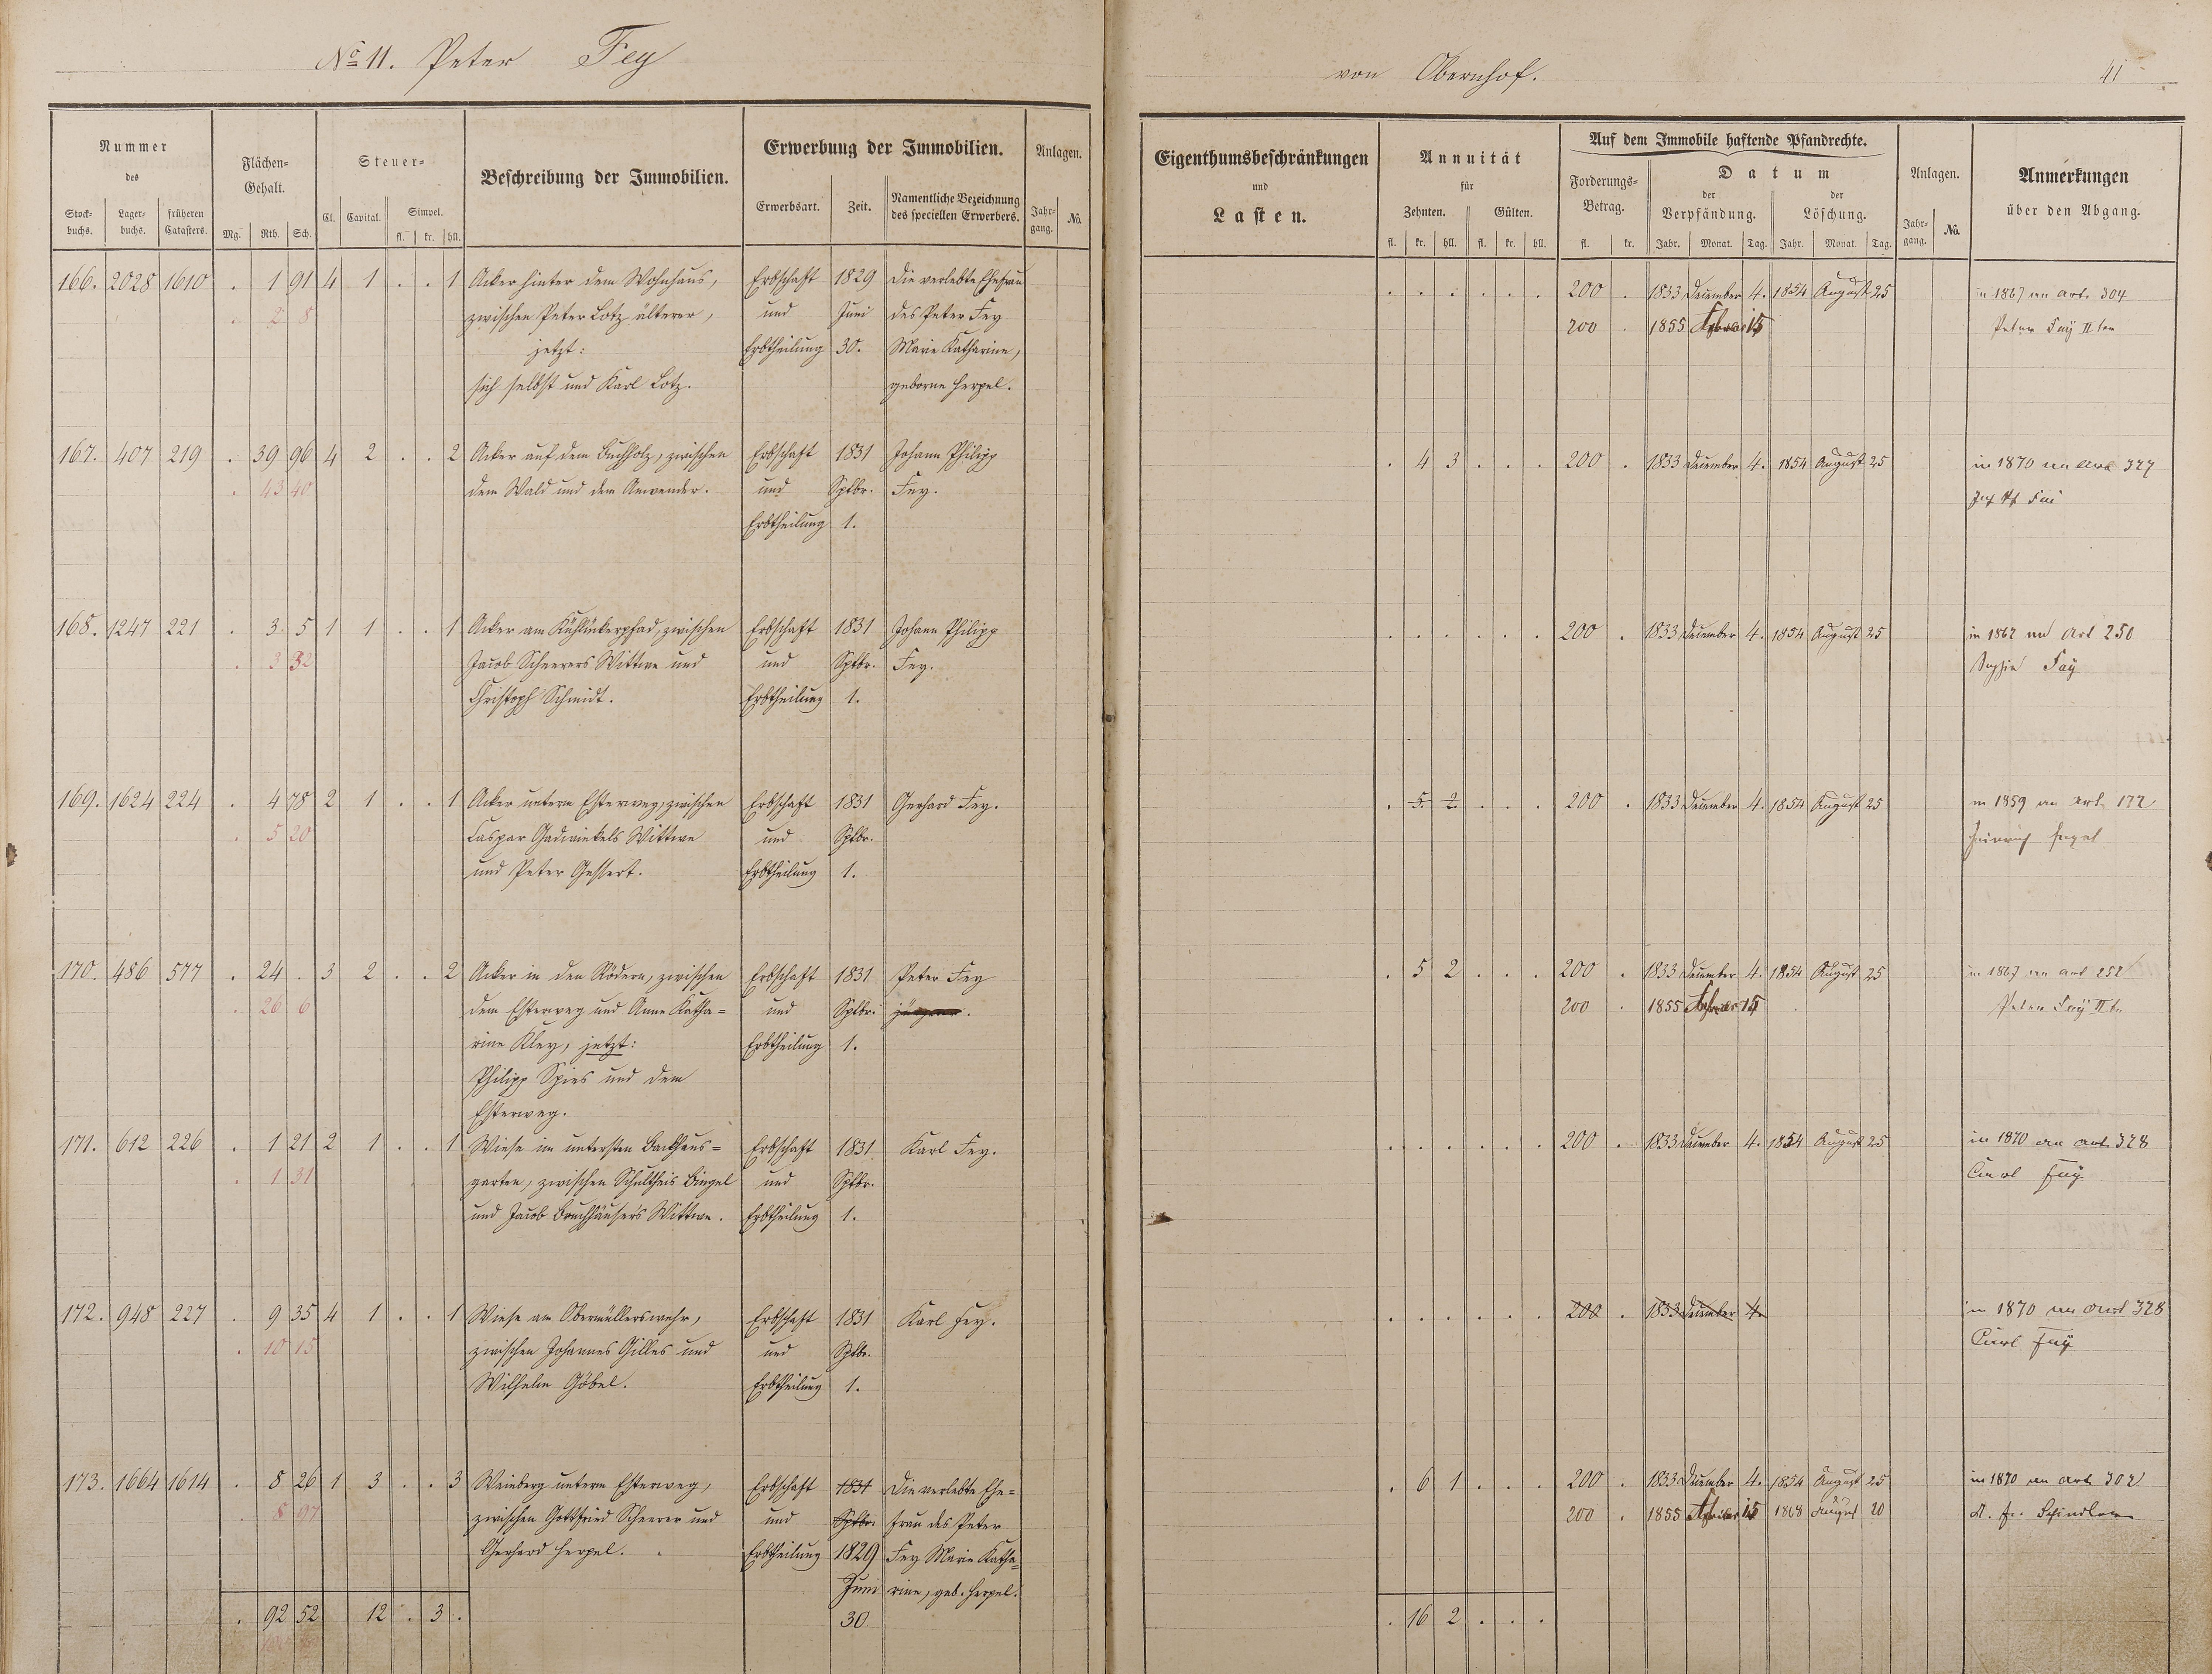 No 11. Peter Fey
von Obernhof.
41
Nummer des
Stockbuchs. Lagerbuchs. früheren Catasters.
Flächen-Gehalt.
Mg. Rth. Sch.
Steuer-
Cl. Capital. Simpel. fl. kr. hll.
Beschreibung der Immobilien.
Erwerbung der Immobilien.
Erwerbsart. Zeit. Namentliche Bezeichnung des speciellen Erwerbers.
Anlagen.
Jahrgang. No.
Eigenthumsbeschränkungen
und
Lasten.
Annuität
für
Zehnten. Gülten.
fl. kr. hll. fl. kr. hll.
Auf dem Immobile haftende Pfandrechte.
Forderungs-Betrag. fl. kr.
Datum
der Verpfändung. der Löschung.
Jahr. Monat. Tag. Jahr. Monat. Tag.
Anlagen.
Jahrgang. No.
Anmerkungen
über den Abgang.
166. 2028 1610 . 1 91 4 1 . . 1 Acker hinter dem Wohnhaus, Erbschaft 1829 Die verlebte Ehefrau
. 2 8 zwischen Peter Lotz älterer, und Juni des Peter Fey
jetzt: Erbtheilung 30. Marie Katharine,
sich selbst und Karl Lotz. geborne Herpel.
. . . . . . 200 . 1833 December 4. 1854 August 25 in 1867 an art. 304
200 . 1855 15 Peter Fey II ten
167. 407 219 . 39 96 4 2 . . 2 Acker auf dem Buchholz, zwischen Erbschaft 1831 Johann Philipp
. 43 40 dem Wald und dem Anwender. und Sptbr. Fey.
Erbtheilung 1.
. 4 3 . . . 200 . 1833 December 4. 1854 August 25 in 1870 an art 327
168. 1247 221 . 3 5 1 1 . . 1 Acker am Kühlinkerpfad, zwischen Erbschaft 1831 Johann Philipp
. 3 32 Jacob Scheerers Wittwe und und Sptbr. Fey.
Christoph Schmidt. Erbtheilung 1.
. . . . . . 200 . 1833 December 4. 1854 August 25 in 1862 an Art 250
Sophie Fey
169. 1624 224 . 4 78 2 1 . . 1 Acker unterm Esterweg, zwischen Erbschaft 1831 Gerhard Fey.
. 5 20 Caspar Gadwinkels Wittwe und Sptbr.
und Peter Gessert. Erbtheilung 1.
. 5 2 . . . 200 . 1833 December 4. 1854 August 25 in 1859 an art. 172
Heinrich
170. 486 577 . 24 . 3 2 . . 2 Acker in den Rödern, zwischen Erbschaft 1831 Peter Fey
. 26 6 dem Esterweg und Anne Katha= und Sptbr. jüngerer.
rine Kley, jetzt: Erbtheilung 1.
Philipp Spies und dem
Esterweg.
. 5 2 . . . 200 . 1833 December 4. 1854 August 25 in 1867 an art 252
200 . 1855 15 Peter Fey II ten
171. 612 226 . 1 21 2 1 . . 1 Wiese im untersten Backhaus= Erbschaft 1831 Karl Fey.
. 1 31 garten, zwischen Schultheis Bingel und Sptbr.
und Jacob Bruchhäusers Wittwe. Erbtheilung 1.
. . . . . . 200 . 1833 December 4. 1854 August 25 in 1870 an art. 328
Carl Fey
172. 948 227 . 9 35 4 1 . . 1 Wiese am Obermüllerswehr, Erbschaft 1831 Karl Fey.
. 10 15 zwischen Johannes Gilles und und Sptbr.
Wilhelm Göbel. Erbtheilung 1.
. . . . . . 200 . 1833 December 4. in 1870 an Art 328
Carl Fey
173. 1664 1614 . 8 26 1 3 . . 3 Weinberg unterm Esterweg, Erbschaft 1831 Die verlebte Ehe=
. 8 97 zwischen Gottfried Scheerer und und Sptbr. frau des Peter
Gerhard Herpel. Erbtheilung 1829 Fey Marie Katha=
Juni rine, geb. Herpel.
30
. 6 1 . . . 200 . 1833 December 4. 1854 August 25 in 1870 an art. 302
200 . 1855 15 1868 August 20
. 92 52 12 . 3 .
. 16 2 . . .